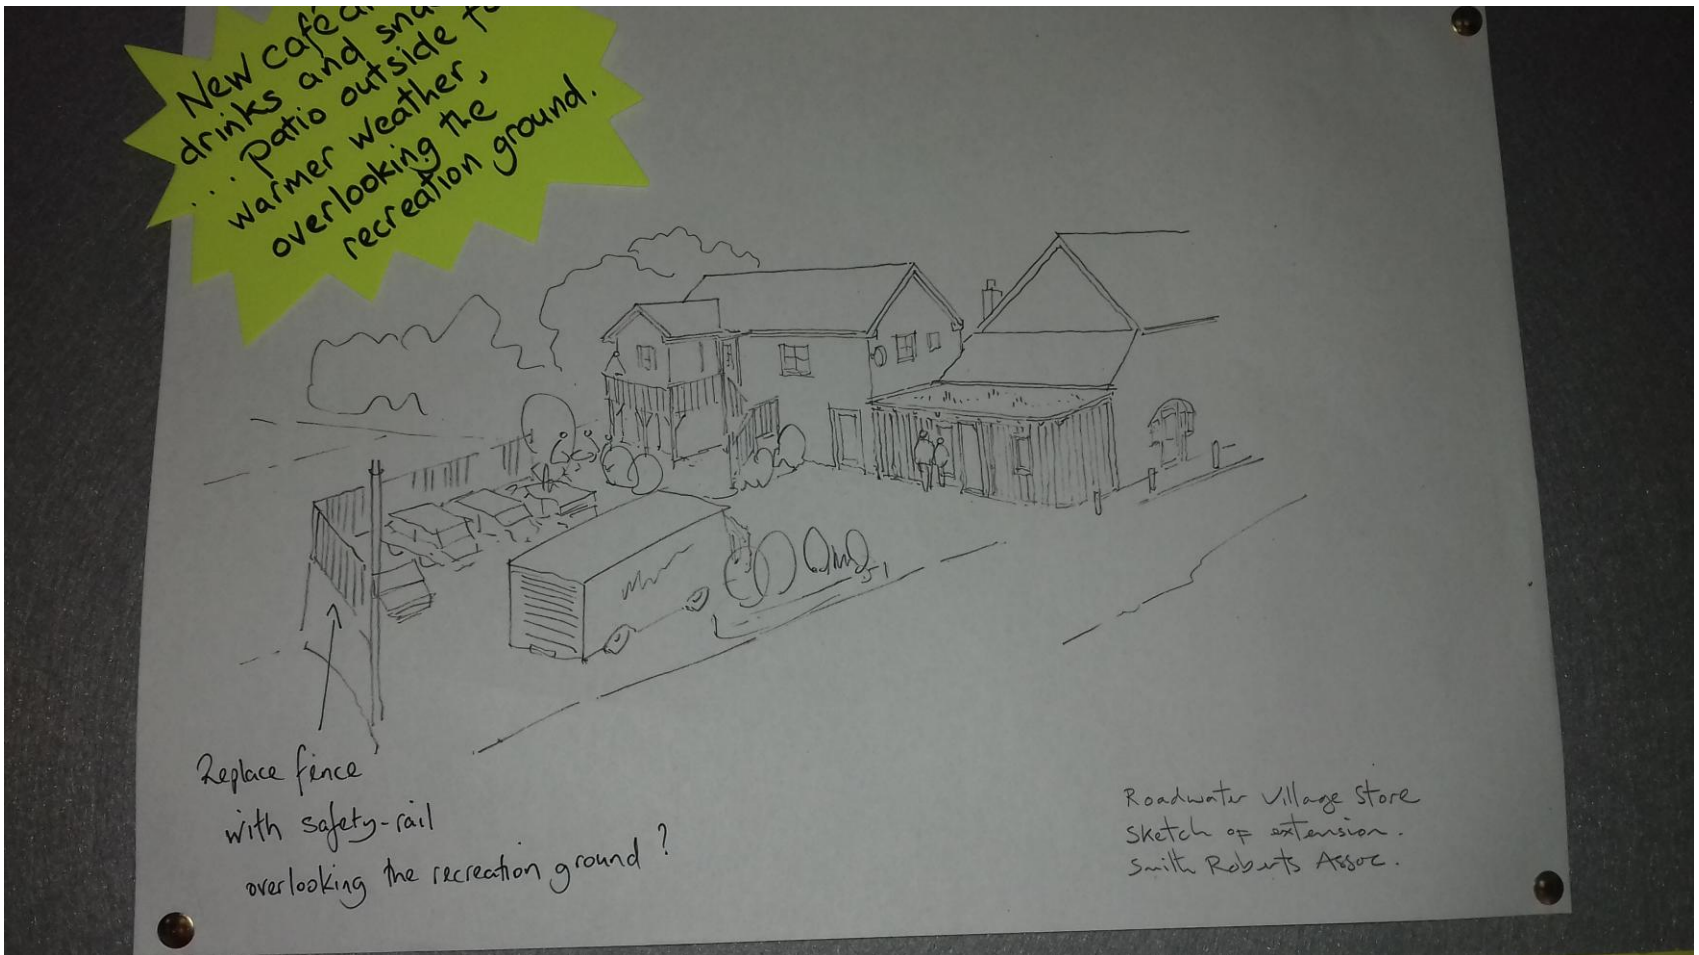 New café
drinks and
... patio outside
warmer weather,
overlooking the
recreation ground.
Replace fence
with safety-rail
overlooking the recreation ground?
Roadwater Village Store
Sketch of extension.
Smith Roberts Assoc.